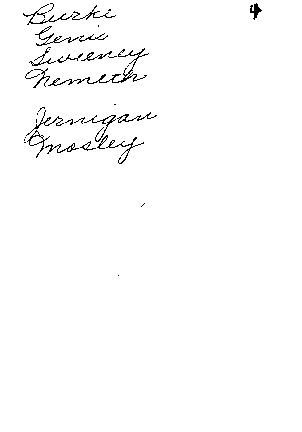 4
Burke
Genie
Sweeney
Nemeth
Jernigan
Mosley